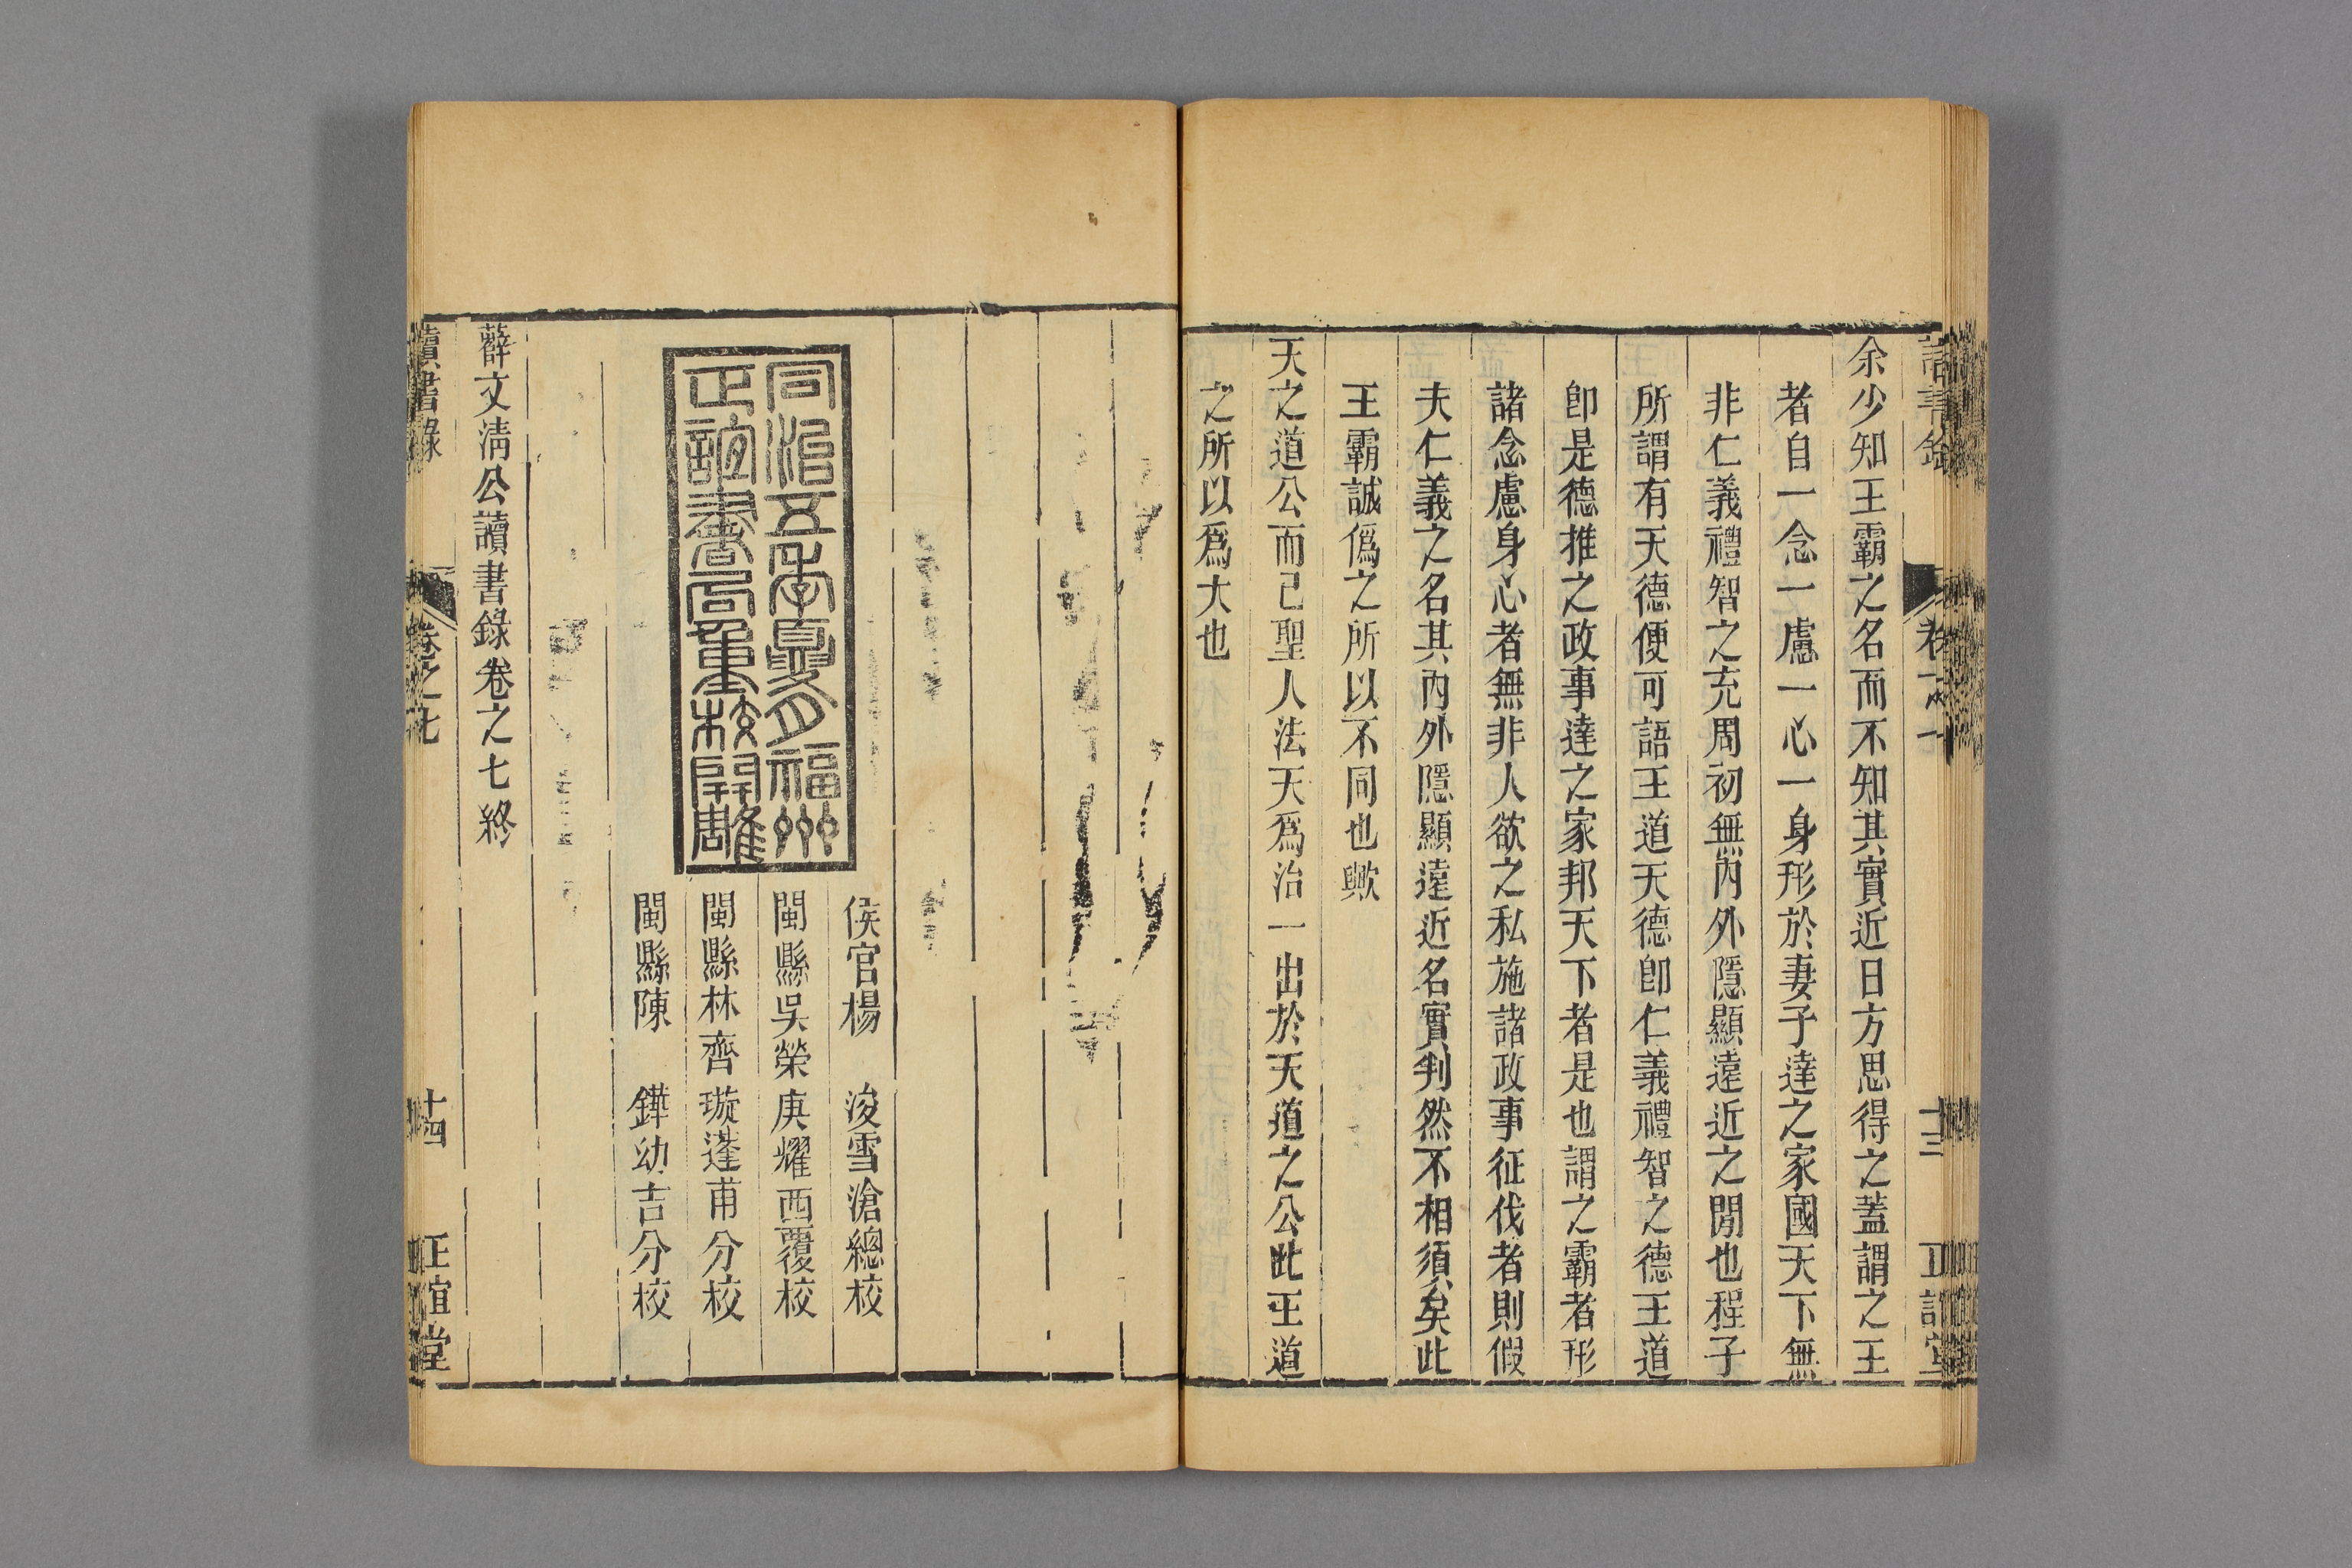 余少知王霸之名而不知其實近日方思得之蓋謂之王
者自一念一慮一心一身形於妻子達之家國天下無
非仁義禮智之充周初無內外隱顯遠近之閒也程子
所謂有天德便可語王道天德卽仁義禮智之德王道
卽是德推之政事達之家邦天下者是也謂之霸者形
諸念慮身心者無非人欲之私施諸政事征伐者則假
夫仁義之名其內外隱顯遠近名實判然不相須矣此
王霸誠僞之所以不同也歟
天之道公而已聖人法天爲治一出於天道之公此王道
之所以爲大也
同治五年夏月福州
正誼書局重校開雕
侯官楊 浚雪滄總校
閩縣吳榮庚耀西覆校
閩縣林齊璇蓬甫分校
閩縣陳 鏵幼吉分校
薛文淸公讀書錄卷之七終
讀書錄 卷之七 十四 正誼堂